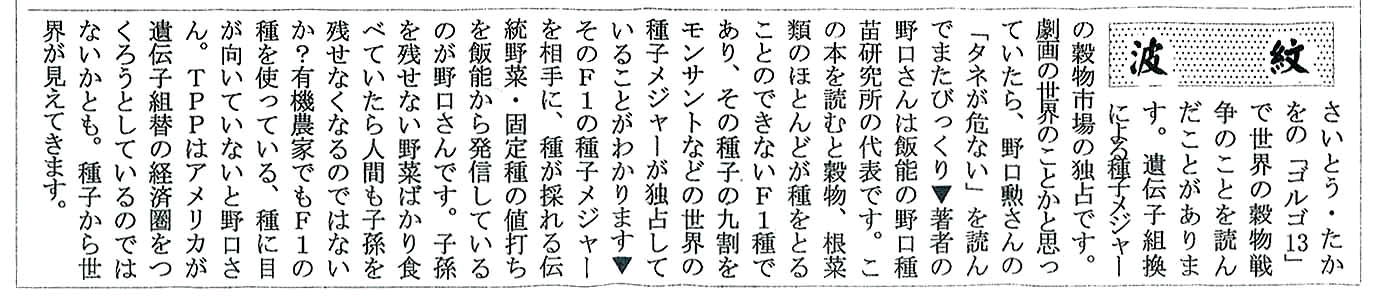 波紋
さいとう・たか
をの「ゴルゴ13」
で世界の穀物戦
争のことを読ん
だことがありま
す。遺伝子組換
による種子メジャー
の穀物市場の独占です。
劇画の世界のことかと思っ
ていたら、野口勲さんの
「タネが危ない」を読ん
でまたびっくり▼著者の
野口さんは飯能の野口種
苗研究所の代表です。こ
の本を読むと穀物、根菜
類のほとんどが種をとる
ことのできないF1種で
あり、その種子の九割を
モンサントなどの世界の
種子メジャーが独占して
いることがわかります▼
そのF1の種子メジャー
を相手に、種が採れる伝
統野菜・固定種の値打ち
を飯能から発信している
のが野口さんです。子孫
を残せない野菜ばかり食
べていたら人間も子孫を
残せなくなるのではない
か?有機農家でもF1の
種を使っている、種に目
が向いていないと野口さ
ん。TPPはアメリカが
遺伝子組替の経済圏をつ
くろうとしているのでは
ないかとも。種子から世
界が見えてきます。